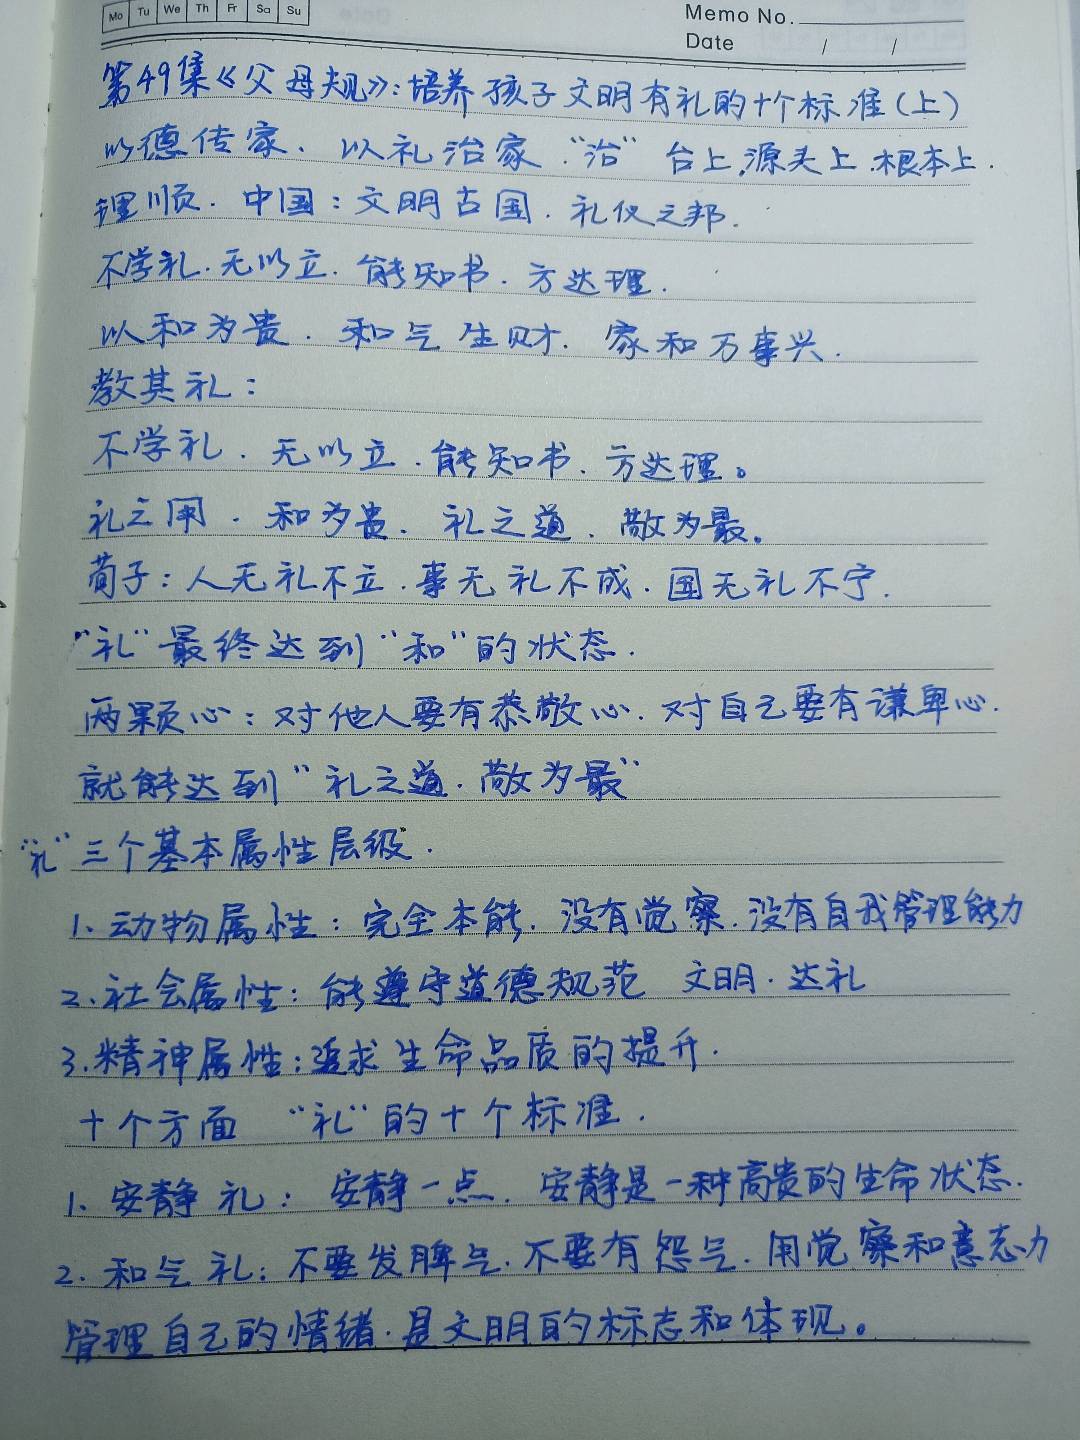 Mo Tu We Th Fr Sa Su
Memo No.
Date / /
第49集《父母规》:培养孩子文明有礼的十个标准(上)
以德传家、以礼治家“治”台上,源头上.根本上.
理顺.中国:文明古国.礼仪之邦.
不学礼.无以立.能知书.方达理.
以和为贵.和气生财.家和万事兴.
教其礼:
不学礼.无以立.能知书.方达理。
礼之用.和为贵.礼之道.敬为最。
荀子:人无礼不立.事无礼不成.国无礼不宁.
“礼”最终达到“和”的状态.
两颗心:对他人要有恭敬心.对自己要有谦卑心.
就能达到“礼之道.敬为最”
“礼”三个基本属性层级.
1、动物属性:完全本能.没有觉察.没有自我管理能力
2、社会属性:能遵守道德规范 文明.达礼
3.精神属性:追求生命品质的提升.
十个方面 “礼”的十个标准.
1、安静礼:安静一点.安静是一种高贵的生命状态.
2.和气礼:不要发脾气.不要有怨气.用觉察和意志力
管理自己的情绪.是文明的标志和体现。